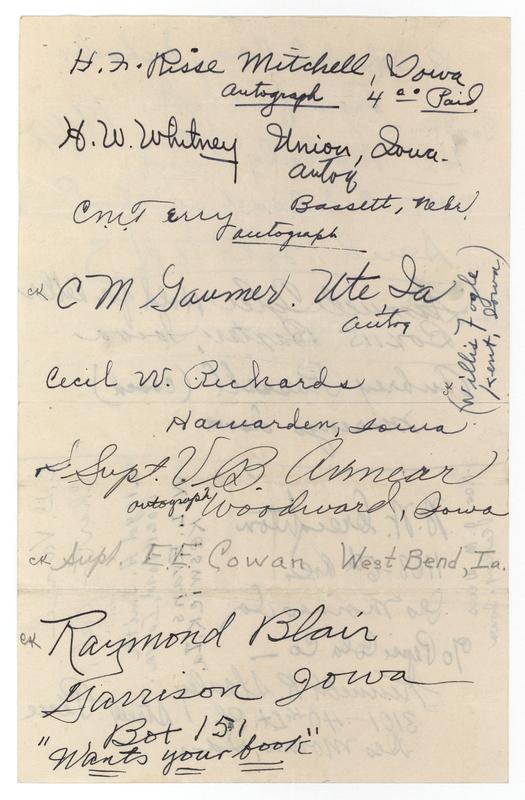 H. F. Risse Mitchell, Iowa
Autograph 4 00 Paid
H. W. Whitney Union, Iowa.
Autog
Bassett, Nebr.
C.M. Terry
autograph
CK C M Gaumer. Ute, Ia
Autog
CK (Willis Fogle
Kent, Iowa)
Cecil W. Richards
Hawarden, Iowa
Supt. V. B. Arnear
autograph Woodward, Iowa
CK Supt. E.E. Cowan West Bend, Ia.
CK Raymond Blair
Garrison Iowa
Box 151
"Wants your book"